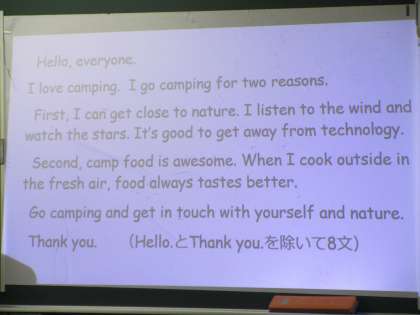 Hello, everyone.
I love camping. I go camping for two reasons.
First, I can get close to nature. I listen to the wind and
watch the stars. It's good to get away from technology.
Second, camp food is awesome. When I cook outside in
the fresh air, food always tastes better.
Go camping and get in touch with yourself and nature.
Thank you. (Hello.とThank you.を除いて8文)